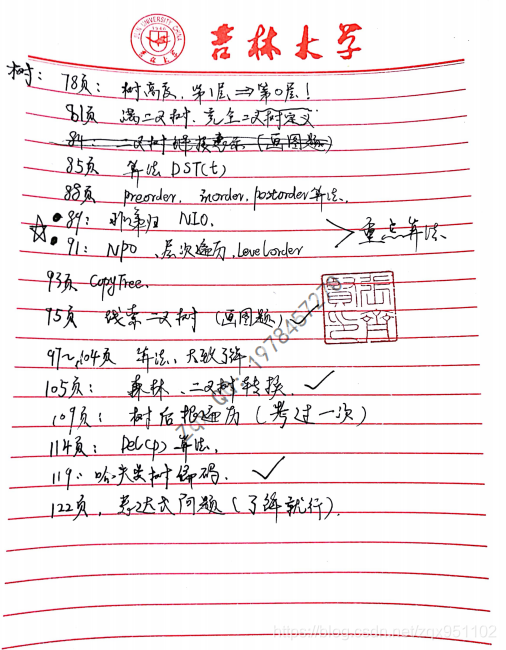 JILIN UNIVERSITY CHINA
1946
吉林大学
树:
78页: 树高度、第1层⇒第0层!
81页 满二叉树、完全二叉树定义
84: 二叉树链接表示(画图题)
85页 算法 DST(t)
88页 preorder, Inorder, postorder算法.
89: 非递归 NIO.
91: NPO、层次遍历、Levelorder
重点算法
93页 CopyTree.
95页 线索二叉树(画图题) ✓
97~104页 算法、大致了解
105页: 森林、二叉树转换 ✓
109页: 树后根遍历(考过一次)
114页: Del(p) 算法.
119: 哈夫曼树编码. ✓
122页, 表达式问题(了解就行).
https://blog.csdn.net/zqx951102